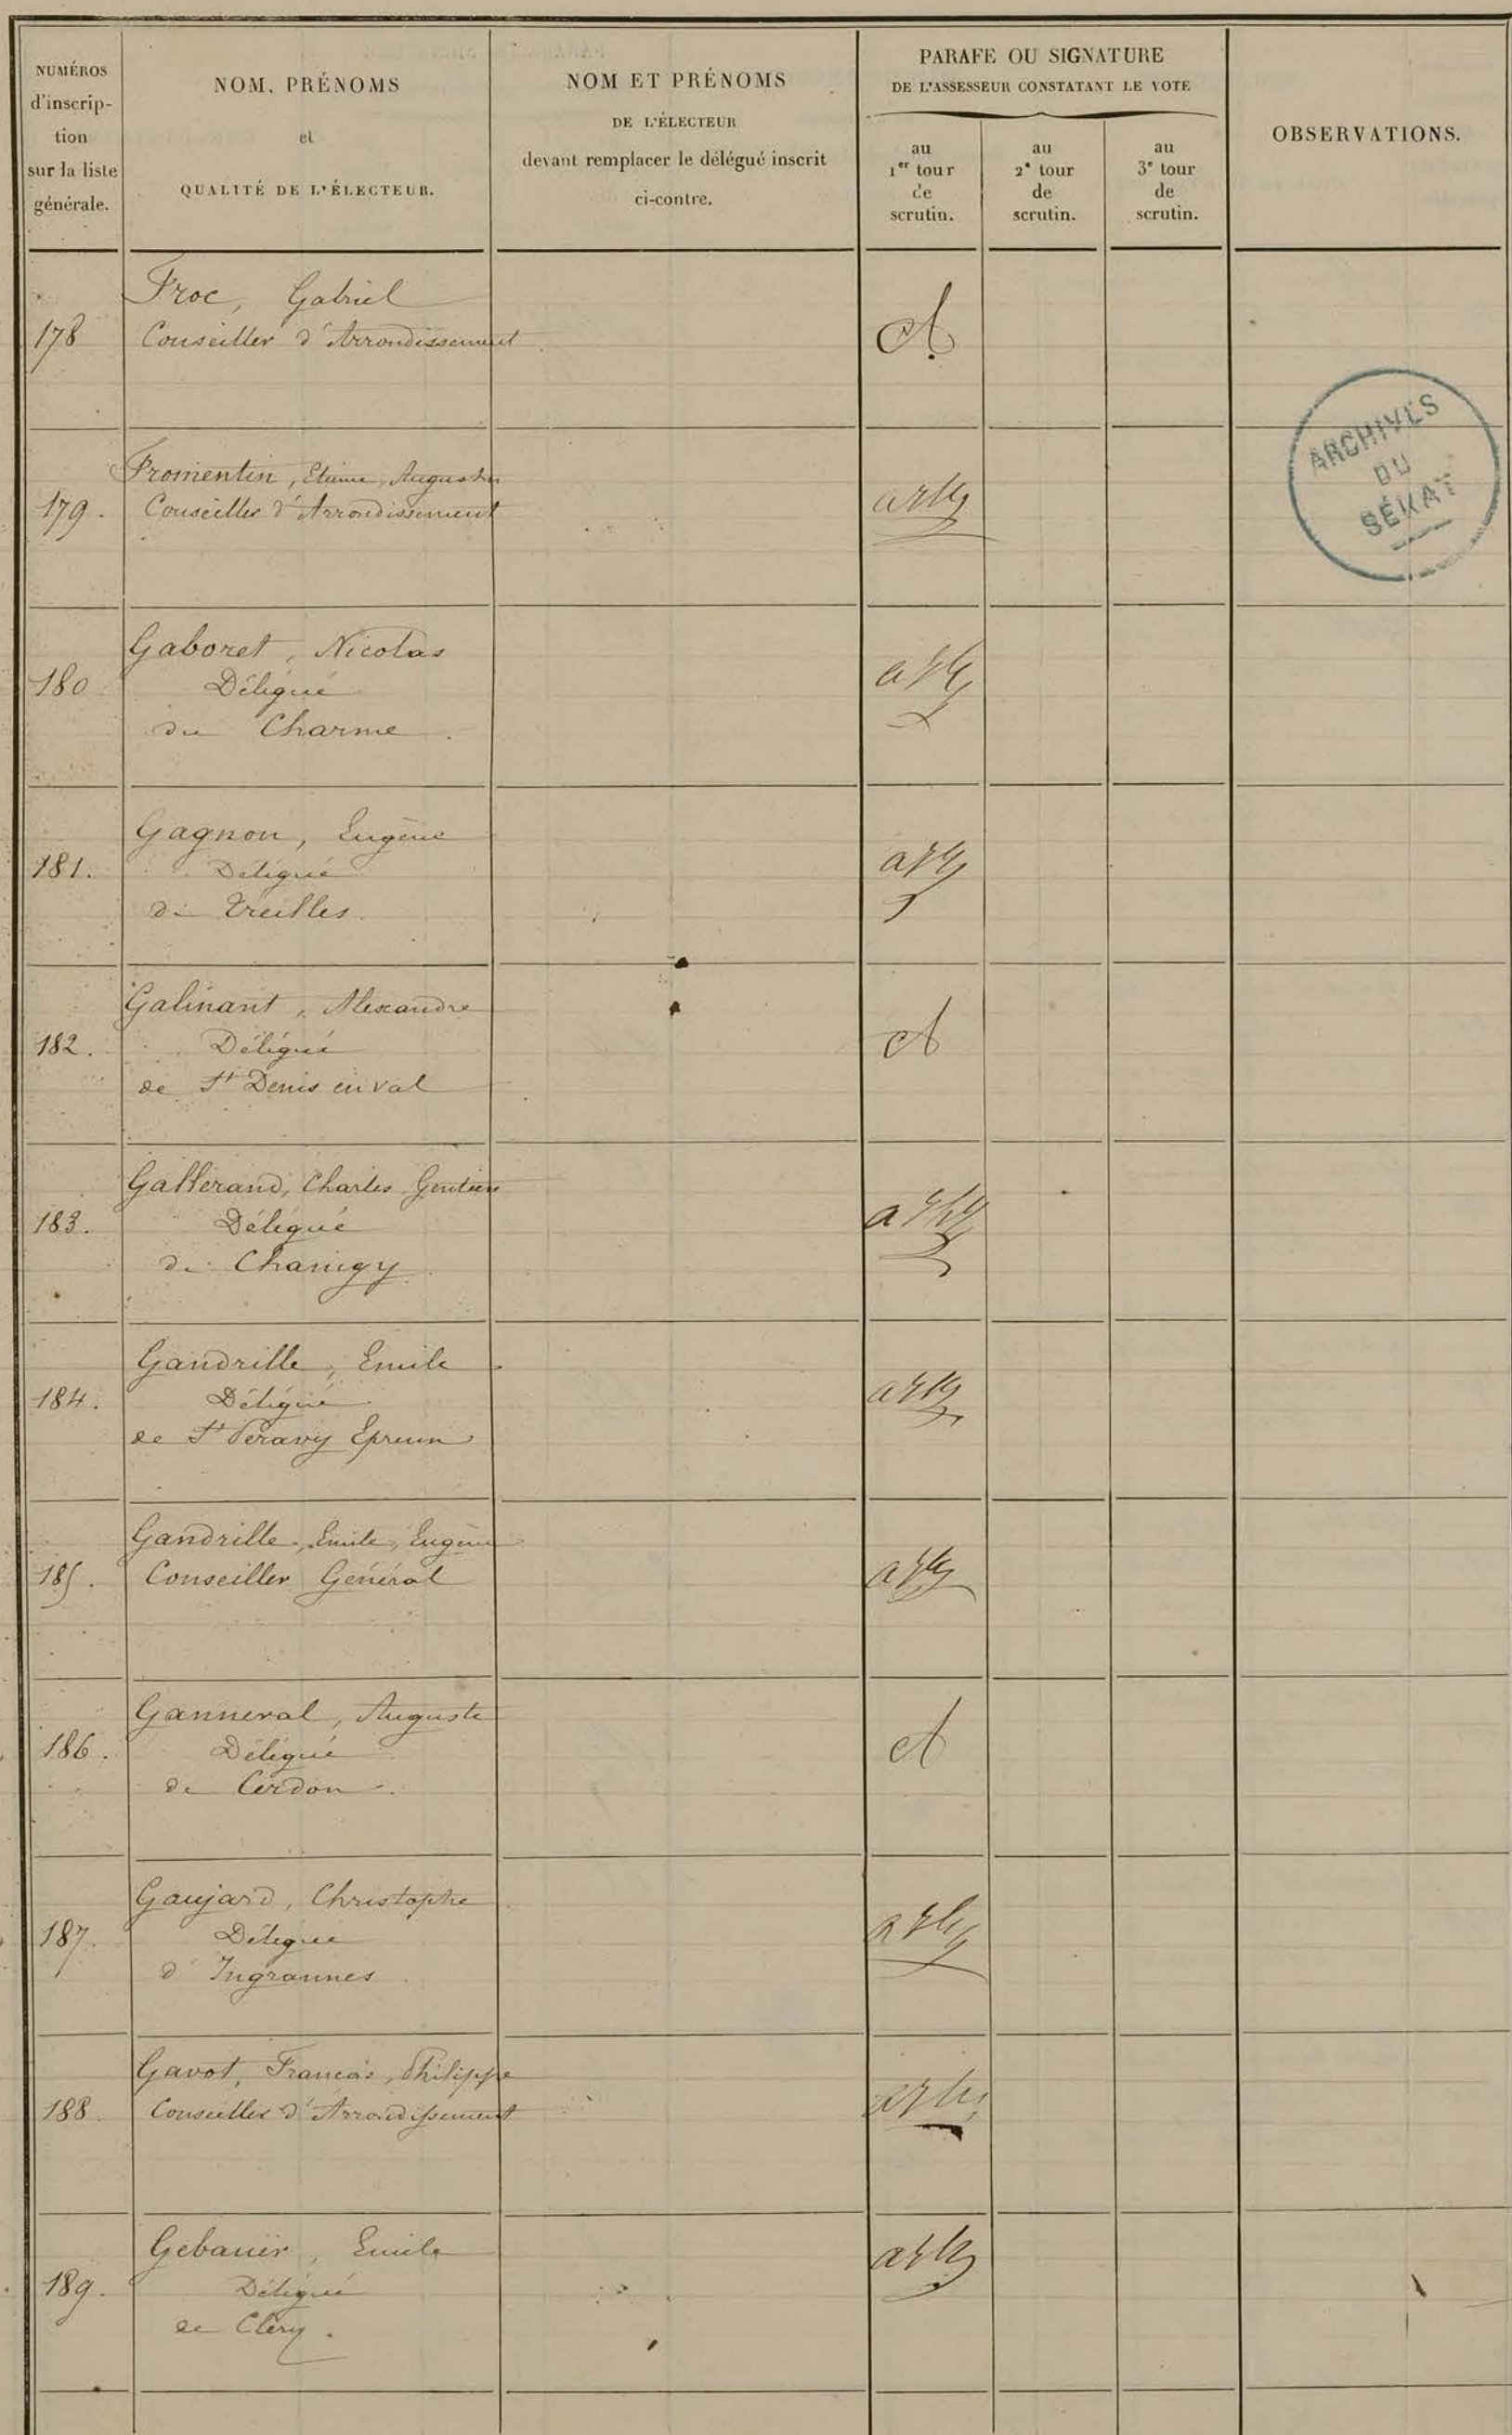 NUMÉROS
d'inscrip-
tion
sur la liste
générale.
NOM, PRÉNOMS
et
QUALITÉ DE L'ÉLECTEUR.
NOM ET PRÉNOMS
DE L'ÉLECTEUR
devant remplacer le délégué inscrit
ci-contre.
PARAFE OU SIGNATURE
DE L'ASSESSEUR CONSTATANT LE VOTE
au
1er tour
de
scrutin.
au
2e tour
de
scrutin.
au
3e tour
de
scrutin.
OBSERVATIONS.
Froc, Gabriel
178 Conseiller d'Arrondissement
ARCHIVES
DU
SÉNAT
Fromentin, Etienne, Augustin
179. Conseiller d'Arrondissement
Gaboret, Nicolas
180 Délégué
du Charme.
Gagnon, Eugène
181. Délégué
de Treilles.
Galinant, Alexandre
182. Délégué
de St Denis en val
Gallerand, Charles, Gentien
183. Délégué
de Chaingy
Gandrille, Emile
184. Délégué
de St Peravy Epreux
Gandrille, Emile, Eugène
185. Conseiller Général
Ganneral, Auguste
186. Délégué
de Cerdon.
Gaujard, Christophe
187. Délégué
d'Ingrannes
Gavot, François, Philippe
188 Conseiller d'Arrondissement
Gebaüer, Emile
189. Délégué
de Cléry.